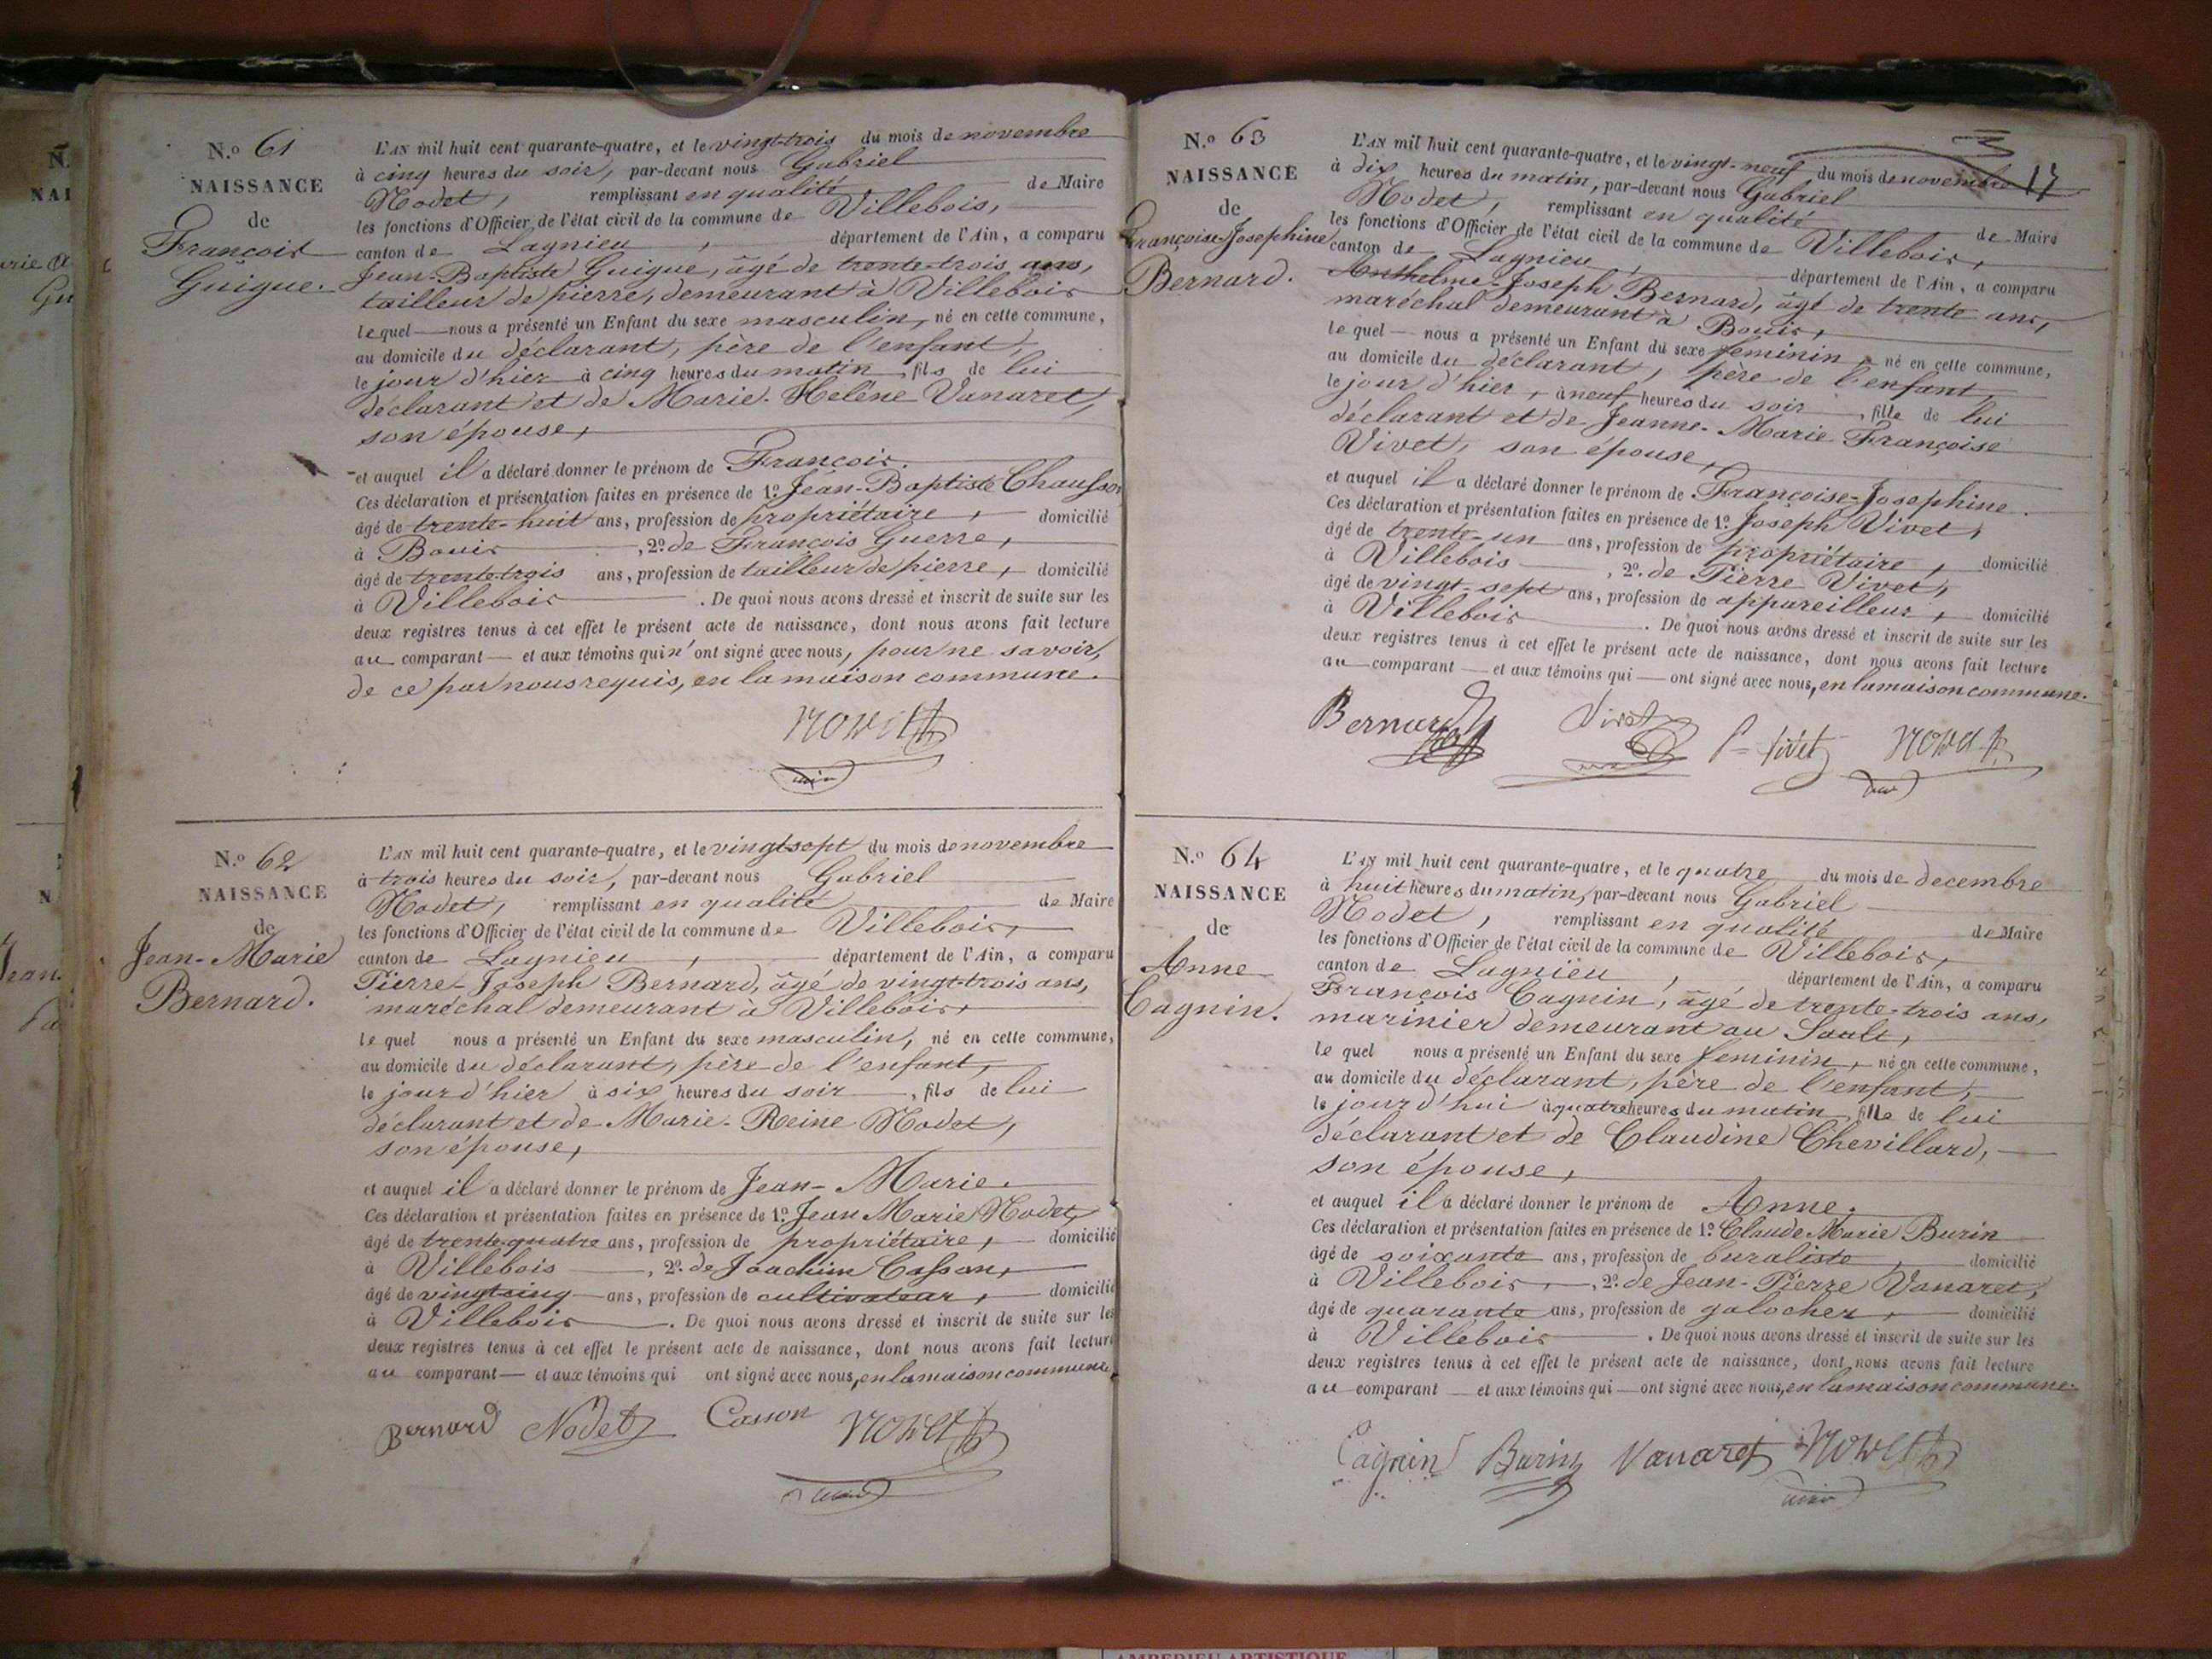 N.o 61
NAISSANCE
de
François
Guigue.
L'AN mil huit cent quarante-quatre, et le vingt-trois du mois de novembre
à cinq heures du soir, par-devant nous Gabriel
Nodet, remplissant en qualité de Maire
les fonctions d'Officier de l'état civil de la commune de Villebois,
canton de Lagnieu, département de l'Ain, a comparu
Jean-Baptiste Guigue, âgé de trente-trois ans,
tailleur de pierre, demeurant à Villebois
lequel nous a présenté un Enfant du sexe masculin, né en cette commune,
au domicile du déclarant, père de l'enfant,
le jour d'hier à cinq heures du matin, fils de lui
déclarant et de Marie-Helène Vanaret,
son épouse,
et auquel il a déclaré donner le prénom de François.
Ces déclaration et présentation faites en présence de 1.o Jean-Baptiste Chausson
âgé de trente-huit ans, profession de propriétaire, domicilié
à Bouis, 2.o de François Guerre,
âgé de trente-trois ans, profession de tailleur de pierre, domicilié
à Villebois. De quoi nous avons dressé et inscrit de suite sur les
deux registres tenus à cet effet le présent acte de naissance, dont nous avons fait lecture
au comparant et aux témoins qui n'ont signé avec nous, pour ne savoir,
de ce par nous requis, en la maison commune.
Nodet
N.o 62
NAISSANCE
de
Jean-Marie
Bernard.
L'AN mil huit cent quarante-quatre, et le vingt-sept du mois de novembre
à trois heures du soir, par-devant nous Gabriel
Nodet, remplissant en qualité de Maire
les fonctions d'Officier de l'état civil de la commune de Villebois,
canton de Lagnieu, département de l'Ain, a comparu
Pierre-Joseph Bernard, âgé de vingt-trois ans,
maréchal demeurant à Villebois,
lequel nous a présenté un Enfant du sexe masculin, né en cette commune,
au domicile du déclarant, père de l'enfant,
le jour d'hier à six heures du soir, fils de lui
déclarant et de Marie-Reine Nodet,
son épouse,
et auquel il a déclaré donner le prénom de Jean-Marie.
Ces déclaration et présentation faites en présence de 1.o Jean Marie Nodet,
âgé de trente-quatre ans, profession de propriétaire, domicilié
à Villebois, 2.o de Joachim Casson,
âgé de vingt-cinq ans, profession de cultivateur, domicilié
à Villebois. De quoi nous avons dressé et inscrit de suite sur les
deux registres tenus à cet effet le présent acte de naissance, dont nous avons fait lecture
au comparant et aux témoins qui ont signé avec nous, en la maison commune.
Bernard Nodet Casson Nodet
17
N.o 63
NAISSANCE
de
Françoise-Josephine
Bernard.
L'AN mil huit cent quarante-quatre, et le vingt-neuf du mois de novembre
à dix heures du matin, par-devant nous Gabriel
Nodet, remplissant en qualité de Maire
les fonctions d'Officier de l'état civil de la commune de Villebois,
canton de Lagnieu, département de l'Ain, a comparu
Anthelme-Joseph Bernard, âgé de trente ans,
maréchal demeurant à Bouis,
lequel nous a présenté un Enfant du sexe feminin, né en cette commune,
au domicile du déclarant, père de l'enfant,
le jour d'hier, à neuf heures du soir, fille de lui
déclarant et de Jeanne-Marie Françoise
Vivet, son épouse,
et auquel il a déclaré donner le prénom de Françoise-Josephine.
Ces déclaration et présentation faites en présence de 1.o Joseph Vivet,
âgé de trente-un ans, profession de propriétaire, domicilié
à Villebois, 2.o de Pierre Vivet,
âgé de vingt-sept ans, profession de appareilleur, domicilié
à Villebois. De quoi nous avons dressé et inscrit de suite sur les
deux registres tenus à cet effet le présent acte de naissance, dont nous avons fait lecture
au comparant et aux témoins qui ont signé avec nous, en la maison commune.
Bernard Vivet P. Vivet Nodet
N.o 64
NAISSANCE
de
Anne
Cagnin.
L'AN mil huit cent quarante-quatre, et le quatre du mois de decembre
à huit heures du matin, par-devant nous Gabriel
Nodet, remplissant en qualité de Maire
les fonctions d'Officier de l'état civil de la commune de Villebois,
canton de Lagnieu, département de l'Ain, a comparu
François Cagnin, âgé de trente-trois ans,
marinier demeurant au Sault,
lequel nous a présenté un Enfant du sexe feminin, né en cette commune,
au domicile du déclarant, père de l'enfant,
le jour d'hui à quatre heures du matin, fille de lui
déclarant et de Claudine Chevillard,
son épouse,
et auquel il a déclaré donner le prénom de Anne.
Ces déclaration et présentation faites en présence de 1.o Claude Marie Burin
âgé de soixante ans, profession de buraliste, domicilié
à Villebois, 2.o de Jean-Pierre Vanaret,
âgé de quarante ans, profession de galocher, domicilié
à Villebois. De quoi nous avons dressé et inscrit de suite sur les
deux registres tenus à cet effet le présent acte de naissance, dont nous avons fait lecture
au comparant et aux témoins qui ont signé avec nous, en la maison commune.
Cagnin Burin Vanaret Nodet
AMBERIEU ARTISTIQUE